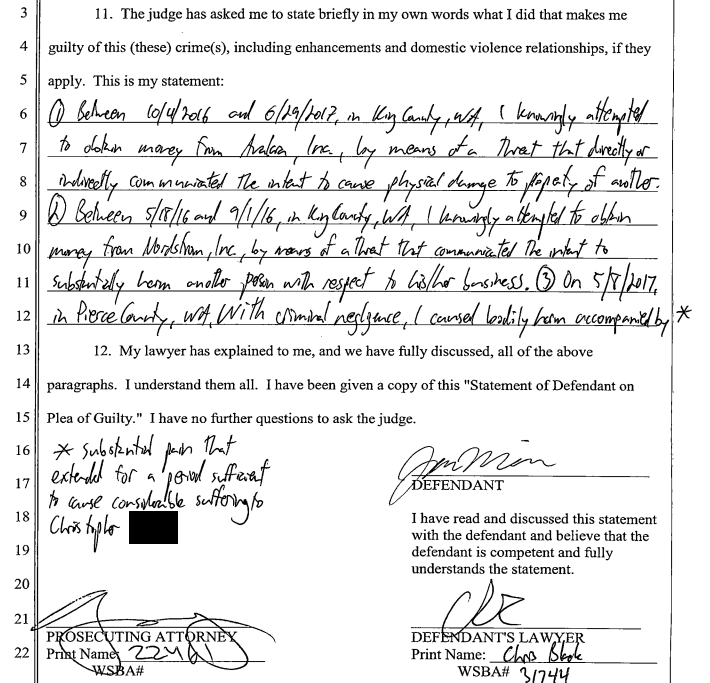 3 11. The judge has asked me to state briefly in my own words what I did that makes me
4 guilty of this (these) crime(s), including enhancements and domestic violence relationships, if they
5 apply. This is my statement:
6 ① Between 10/4/2016 and 6/29/2017, in King County, WA, I knowingly attempted
7 to obtain money from Avalara, Inc., by means of a threat that directly or
8 indirectly communicated the intent to cause physical damage to property of another.
9 ② Between 5/18/16 and 9/1/16, in King County, WA, I knowingly attempted to obtain
10 money from Nordstrom, Inc., by means of a threat that communicated the intent to
11 substantially harm another person with respect to his/her business. ③ On 5/8/2017,
12 in Pierce County, WA, With criminal negligence, I caused bodily harm accompanied by *
13 12. My lawyer has explained to me, and we have fully discussed, all of the above
14 paragraphs. I understand them all. I have been given a copy of this "Statement of Defendant on
15 Plea of Guilty." I have no further questions to ask the judge.
16 * substantial pain that
extended for a period sufficient
17
to cause considerable suffering to
18 Christopher
19
DEFENDANT
I have read and discussed this statement
with the defendant and believe that the
defendant is competent and fully
understands the statement.
20
21
PROSECUTING ATTORNEY
22 Print Name:
WSBA#
DEFENDANT'S LAWYER
Print Name: Chris Black
WSBA# 31744